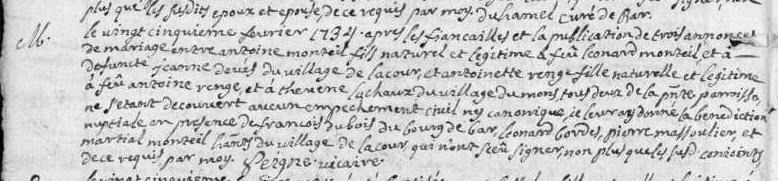 plus que les susdits epoux et epouse de ce requis par moy. Duhamel curé de Bar.
M. le vingt cinquieme fevrier 1734. apres les fiancailles et la publication de trois annonces
de mariage entre antoine monteil fils naturel et legitime a feû leonard monteil et a
defuncte jeanne devés du village de lacour, et antoinette renge fille naturelle et legitime
a feû antoine renge, et a thevene lachaux du village du mons, tous deux de la pnte parroisse,
ne s'etant decouvert aucun empechement civil ny canonique, je leur ay donné la benediction
nuptiale en presence de francois dubois du bourg de bar, leonard bordes, pierre massoulier, et
martial monteil hants du village de lacour, qui n'ont sceû signer, non plus que les susd. conjoints
de ce requis par moy. vicaire.
le vingt cinquieme